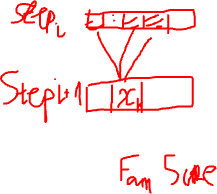 Step i
Step i+1
x
Fam Score